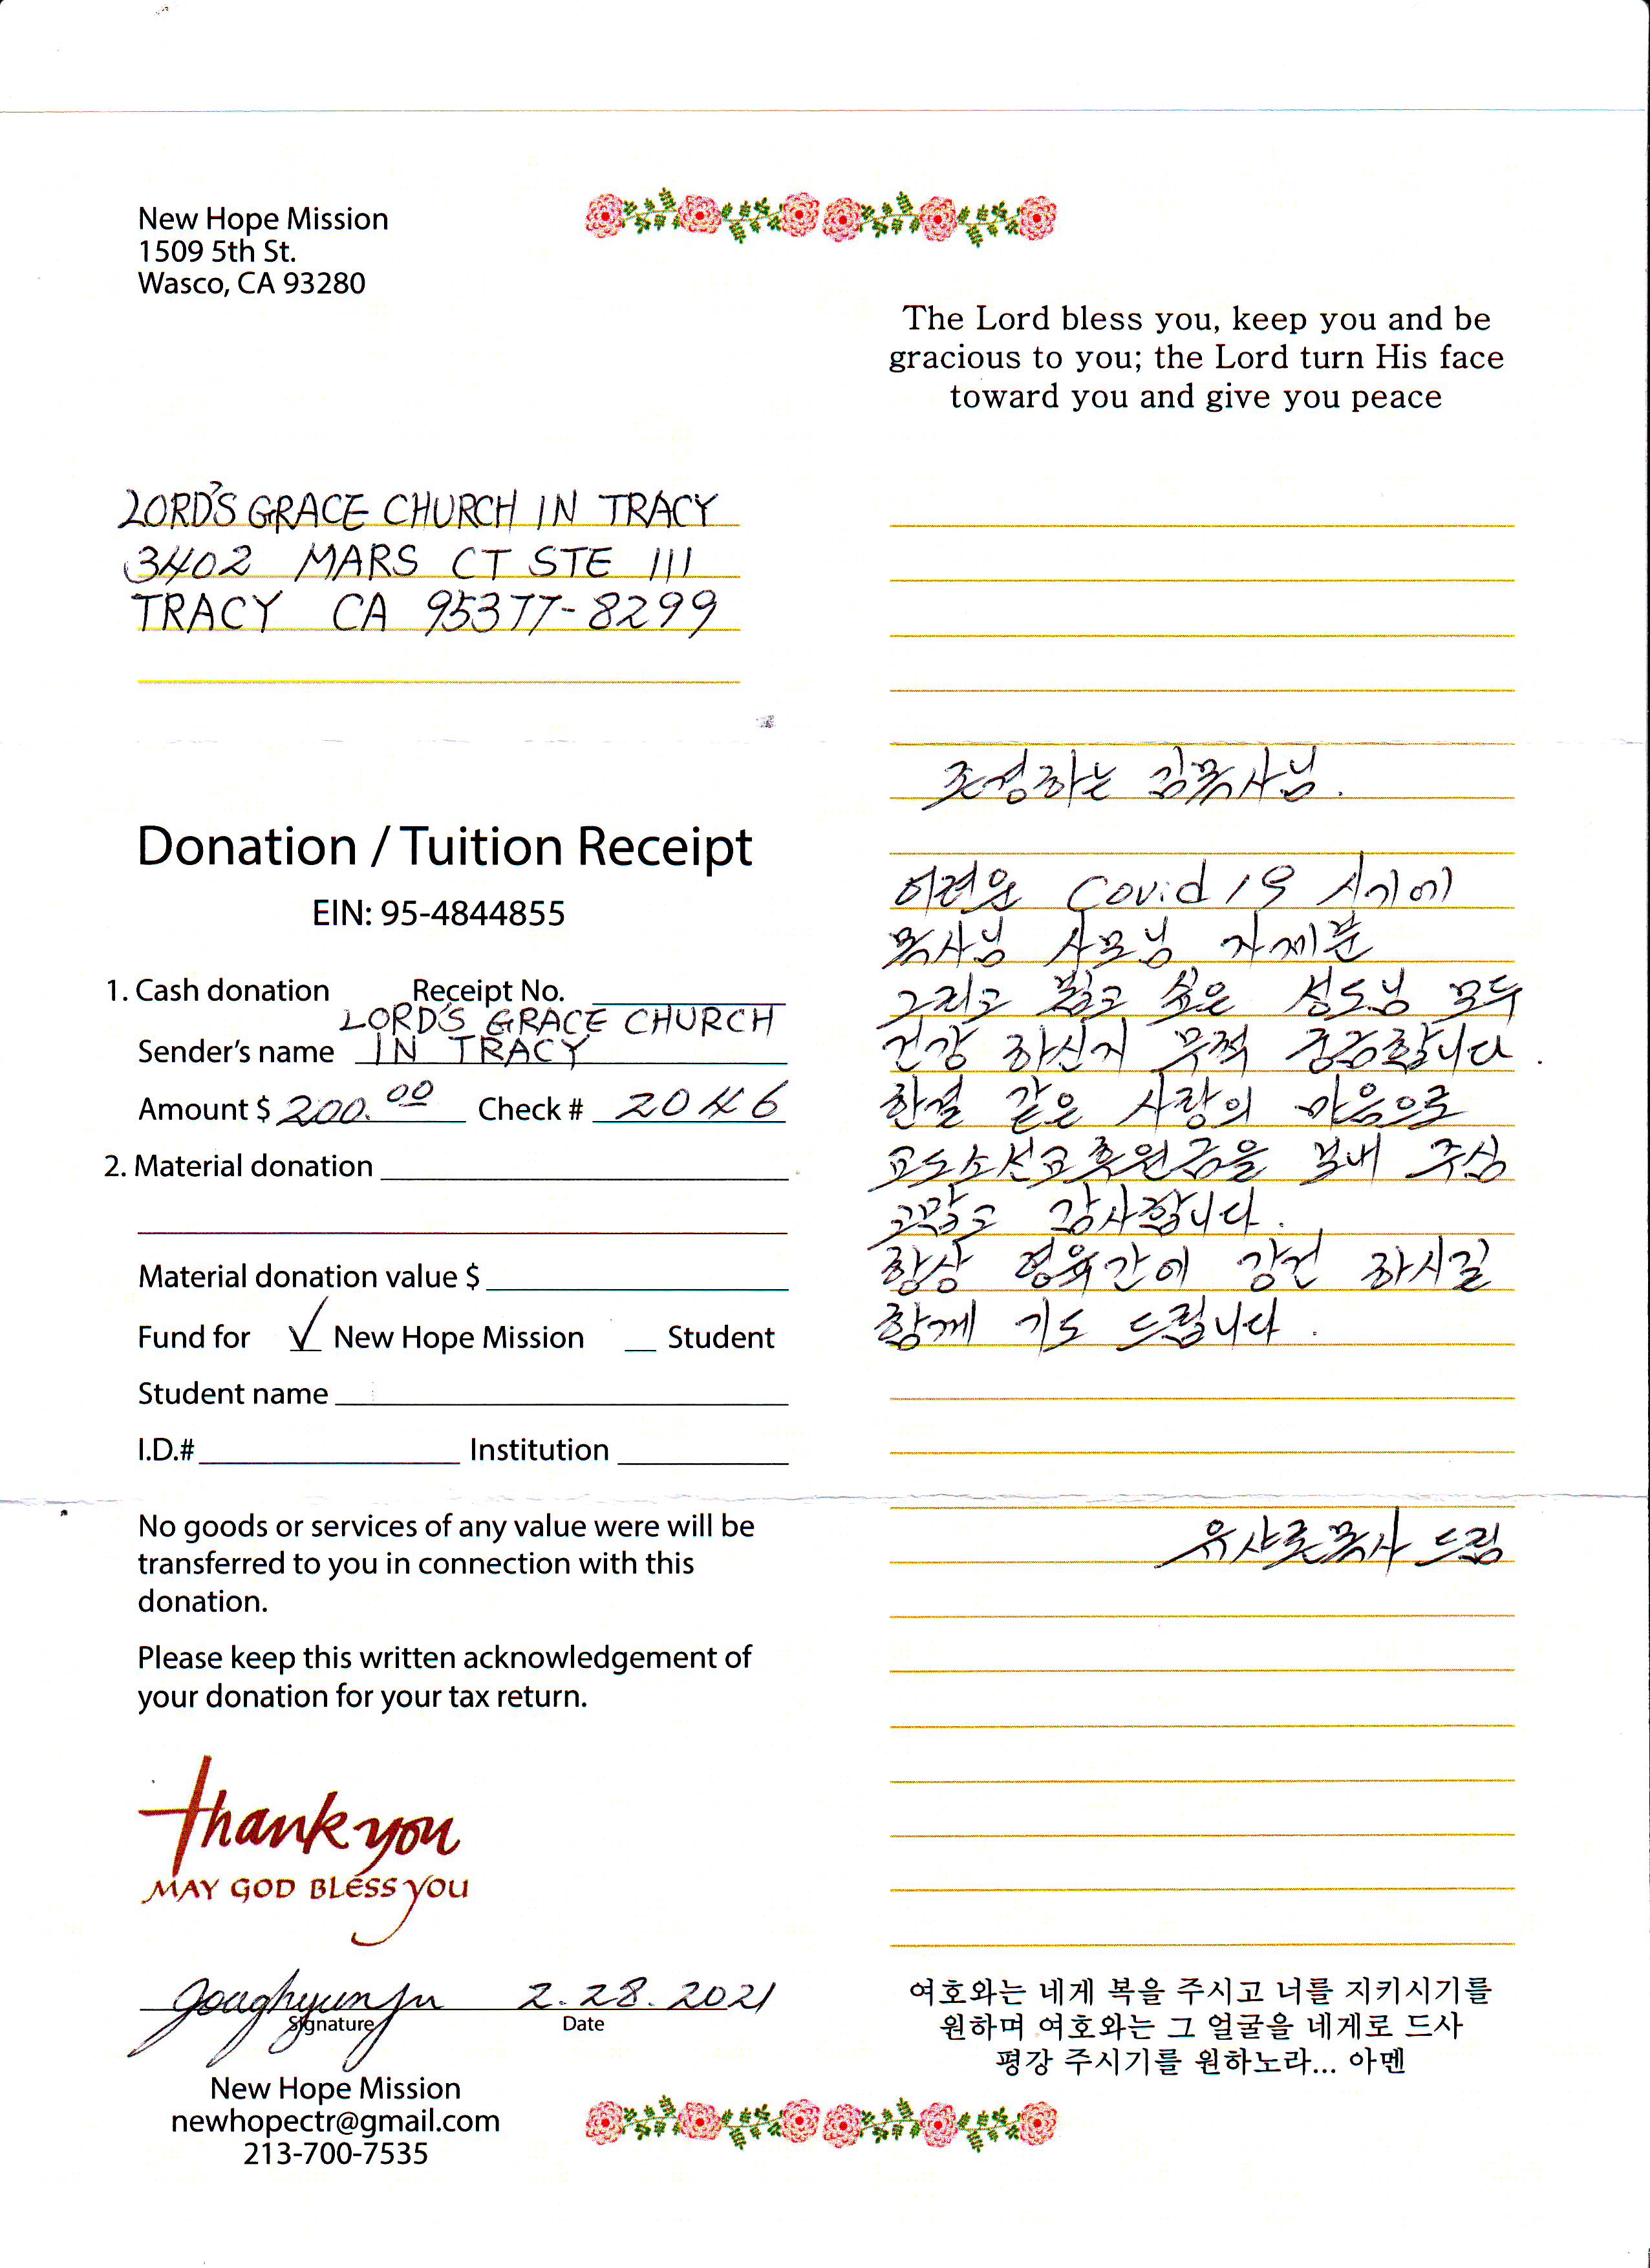 New Hope Mission
1509 5th St.
Wasco, CA 93280
LORD'S GRACE CHURCH IN TRACY
3402 MARS CT STE 111
TRACY CA 95377-8299
Donation / Tuition Receipt
EIN: 95-4844855
1. Cash donation Receipt No.
LORD'S GRACE CHURCH
Sender's name IN TRACY
Amount $ 200.00 Check # 2046
2. Material donation
Material donation value $
Fund for ✓ New Hope Mission Student
Student name
I.D.# Institution
No goods or services of any value were will be
transferred to you in connection with this
donation.
Please keep this written acknowledgement of
your donation for your tax return.
thank you
MAY GOD BLESS YOU
2. 28. 2021
Signature Date
New Hope Mission
newhopectr@gmail.com
213-700-7535
The Lord bless you, keep you and be
gracious to you; the Lord turn His face
toward you and give you peace
존경하는 김목사님.
어려운 Covid 19 시기에
목사님 사모님 자제분
그리고 뵙고 싶은 성도님 모두
건강 하신지 무척 궁금합니다.
한결 같은 사랑의 마음으로
교도소선교후원금을 보내 주심
고맙고 감사합니다.
항상 영육간에 강건 하시길
함께 기도 드립니다.
유샤론목사 드림
여호와는 네게 복을 주시고 너를 지키시기를
원하며 여호와는 그 얼굴을 네게로 드사
평강 주시기를 원하노라... 아멘